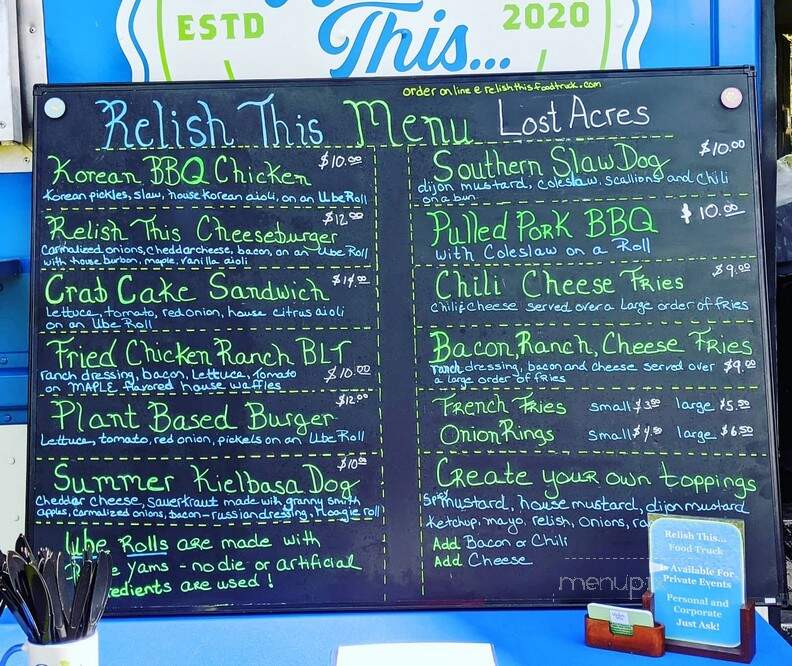 ESTD
2020
This...
order online @ relishthisfoodtruck.com
Relish This Menu Lost Acres
Korean BBQ Chicken $10.00
Korean pickles, slaw, house korean aioli, on an Ube Roll
Relish This Cheeseburger $12.00
Carmalized onions, cheddar cheese, bacon, on an Ube Roll
with house burbon, maple, vanilla aioli
Crab Cake Sandwich $14.00
Lettuce, tomato, red onion, house citrus aioli
on an Ube Roll
Fried Chicken Ranch BLT
ranch dressing, bacon, Lettuce, Tomato $10.00
on MAPLE flavored house waffles
Plant Based Burger $12.00
Lettuce, tomato, red onion, pickels on an Ube Roll
Summer Kielbasa Dog $10.00
Cheddar cheese, sauerkraut made with granny smith
apples, carmalized onions, bacon-russian dressing, Hoagie roll
Ube Rolls are made with
yams - no die or artificial
are used!
Southern Slaw Dog $10.00
dijon mustard, coleslaw, scallions and chili
on a bun
Pulled Pork BBQ $10.00
with Coleslaw on a Roll
Chili Cheese Fries $9.00
Chili & cheese served over a Large order of fries
Bacon, Ranch, Cheese Fries
ranch dressing, bacon and cheese served over $9.00
a large order of fries
French Fries small $3.50 large $5.50
Onion Rings small $4.50 large $6.50
Create your own toppings
Spicy mustard, house mustard, dijon mustard
ketchup, mayo, relish, onions,
Add Bacon or Chili
Add Cheese
menupi
Relish This...
Food Truck
Is Available For
Private Events
Personal and
Corporate
Just Ask!